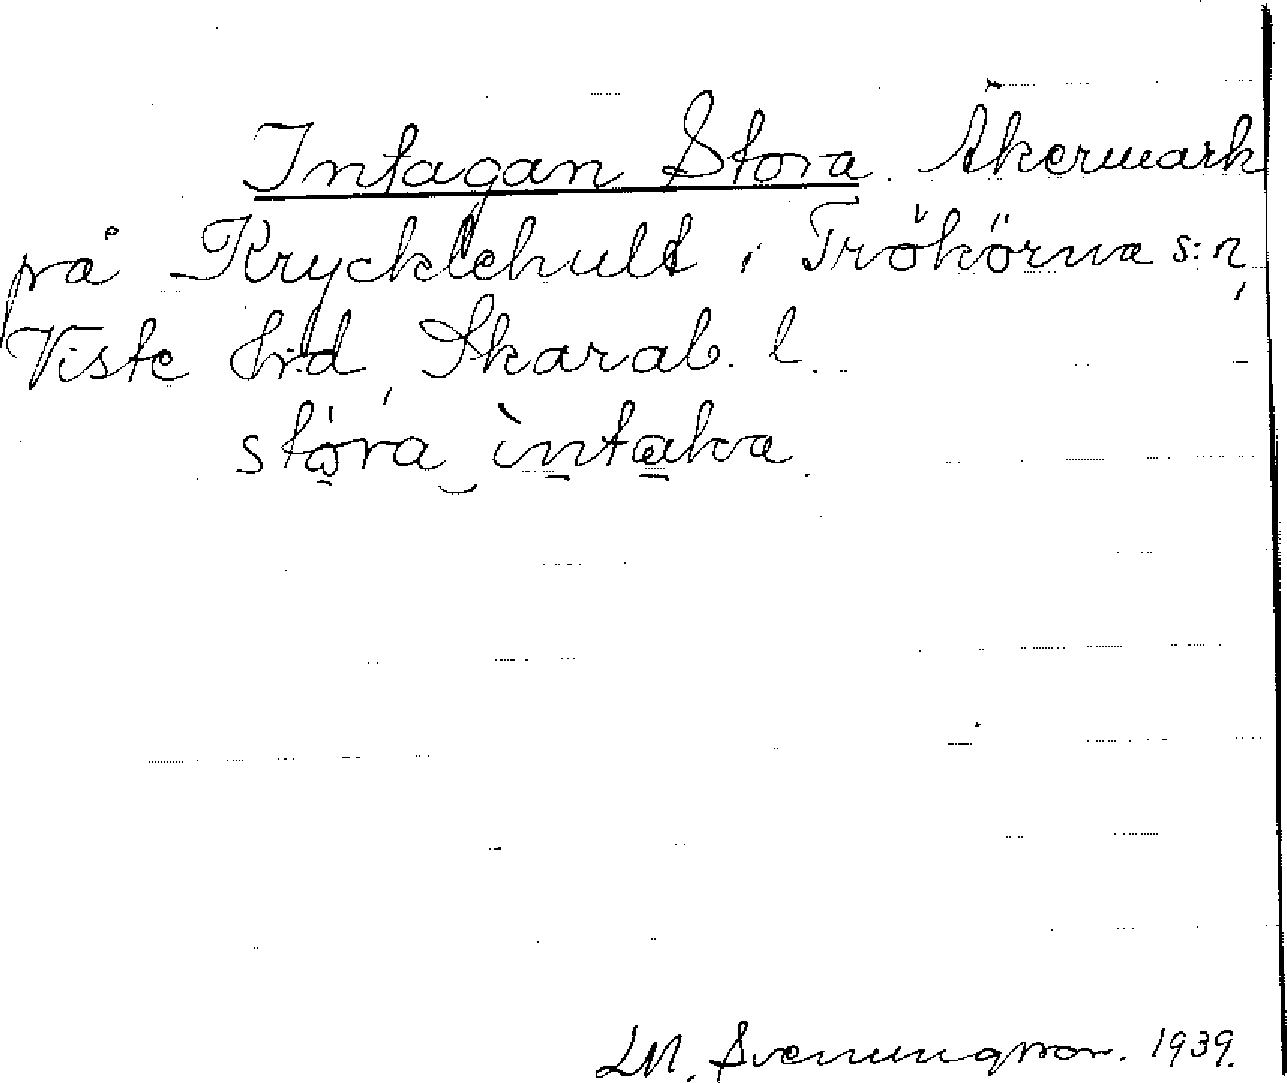 Intagan Stora. Åkermark
på Krycklehult i Trökörna s:n,
Viste hrd, Skarab. l.
stora intaka.
L.M. Svenungsson. 1939.